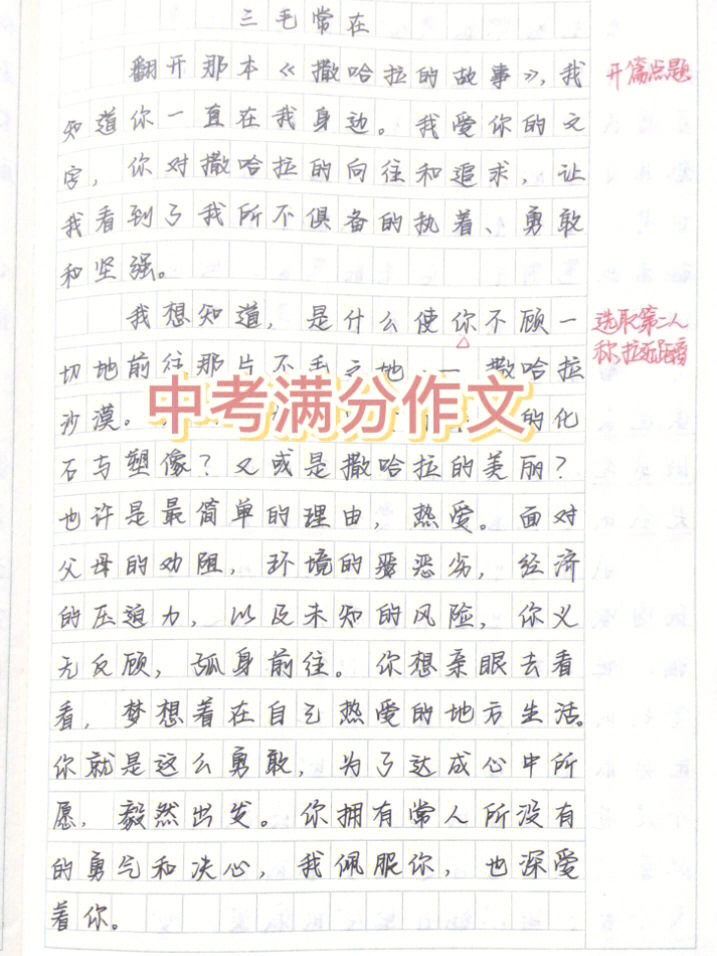 三毛常在
翻开那本《撒哈拉的故事》，我
开篇点题
知道你一直在我身边。我爱你的文
字，你对撒哈拉的向往和追求，让
我看到了我所不俱备的执着、勇敢
和坚强。
我想知道，是什么使你不顾一
选取第二人
称，拉近距离
切地前往那片不毛之地 一 撒哈拉
中考满分作文
沙漠。 的化
石与塑像？又或是撒哈拉的美丽？
也许是最简单的理由，热爱。面对
父母的劝阻，环境的恶劣，经济
的压迫力，以及未知的风险，你义
无反顾，孤身前往。你想亲眼去看
看，梦想着在自己热爱的地方生活。
你就是这么勇敢，为了达成心中所
愿，毅然出发。你拥有常人所没有
的勇气和决心，我佩服你，也深爱
着你。